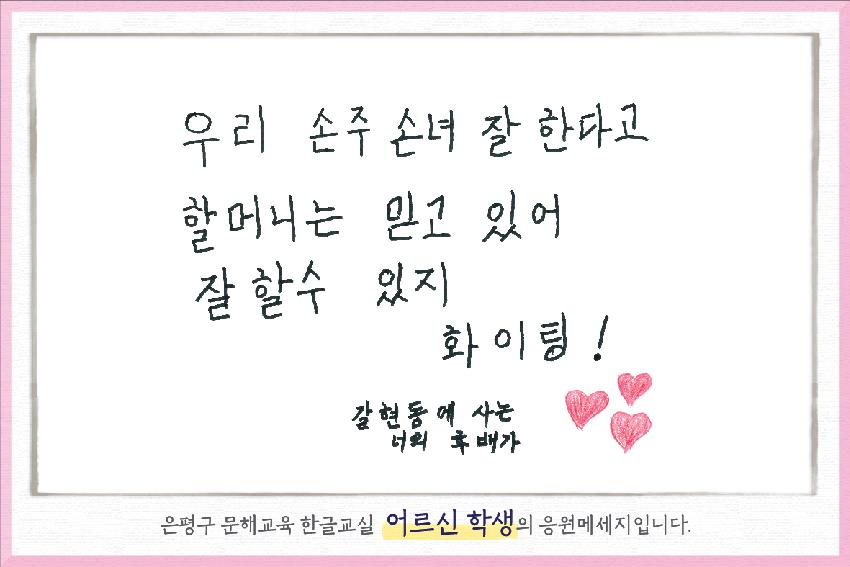 우리 손주 손녀 잘 한다고
할머니는 믿고 있어
잘 할수 있지
화이팅!
갈현동에 사는
너의 후배가
은평구 문해교육 한글교실 어르신 학생의 응원메세지입니다.